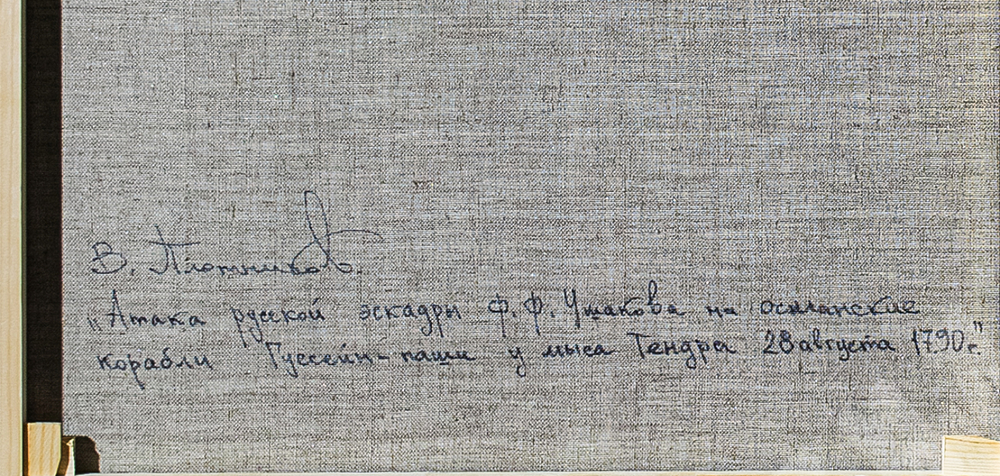 В. Плотников.
„Атака русской эскадры Ф. Ф. Ушакова на османские
корабли Гуссейн-паши у мыса Тендра 28 августа 1790 г."